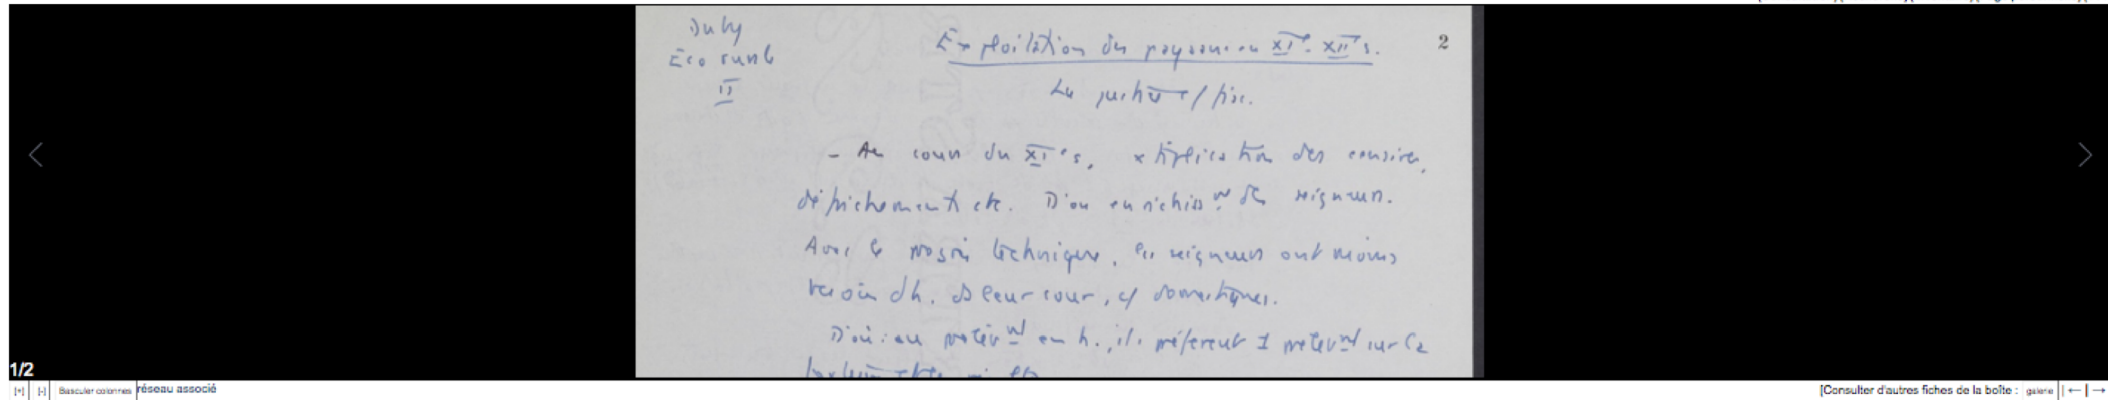 Duby
Eco rurale
II
Exploitation des paysans au XIe. XIIe s.
2
La justice / fisc.
- Au cours du XIe s, xtiplication des censives,
défrichements etc. D'où enrichissnt des seigneurs.
Avec le progrès technique, les seigneurs ont moins
besoin d'h. ds leur cour, c/ domestiques.
D'où : au prélèvnt en h., ils préfèrent 1 prélèvnt sur la
1/2
[+] [-] Basculer colonnes réseau associé
[Consulter d'autres fiches de la boîte : galerie | ← | →